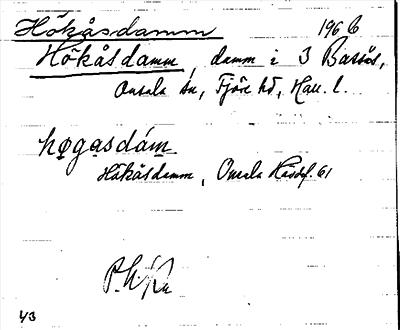 Hökåsdamm 1966
Hökåsdamm, damm i 3 Bassås,
Onsala sn, Fjäre hd, Hall. l.
høgasdám
Hökåsdamm, Onsala Hässl. 61
43